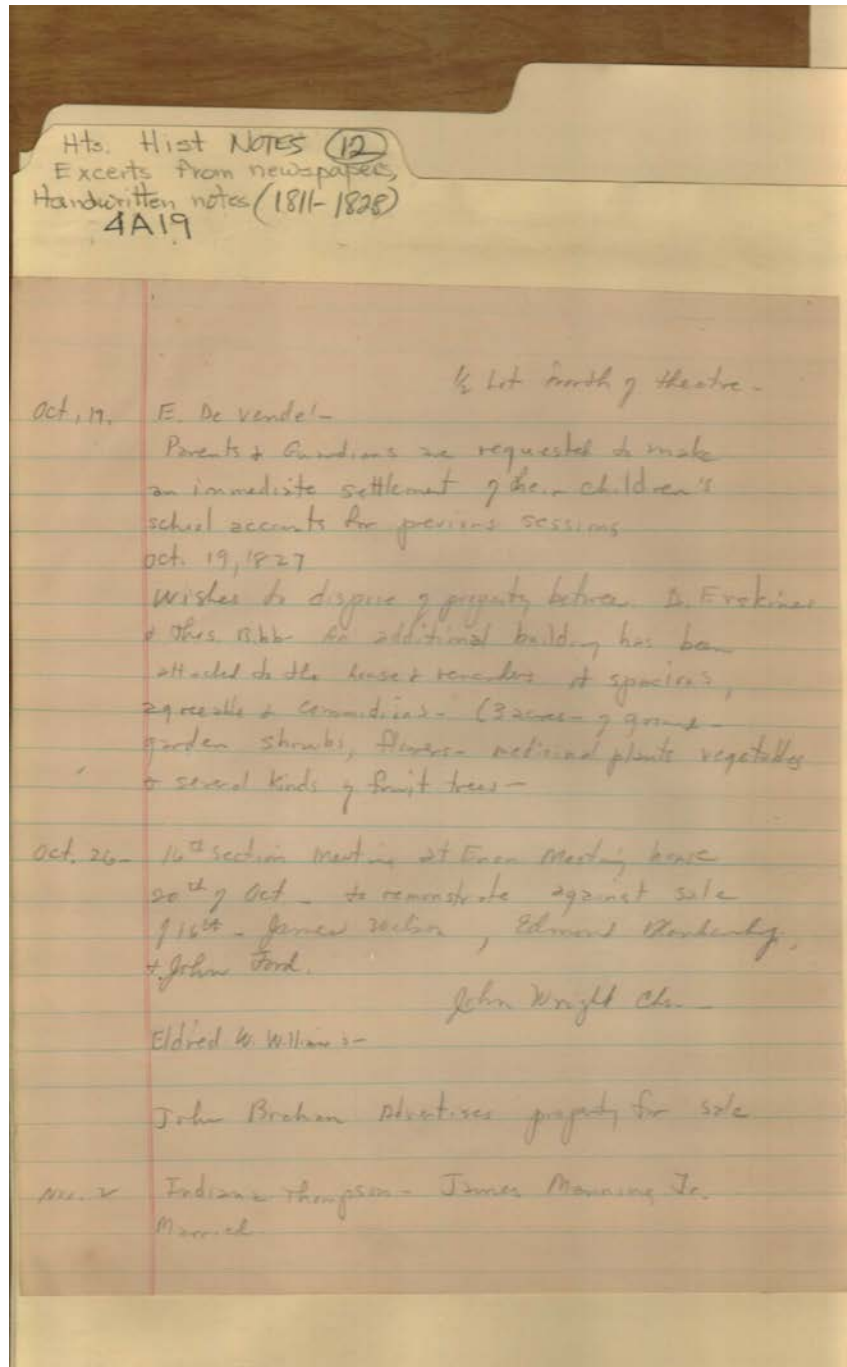 Hts. Hist NOTES (12)
Excerts from newspapers,
Handwritten notes (1811-1828)
4A19
1/2 Lot North of theatre -
Oct, 19. E. De vendel -
Parents & Guardians are requested to make
an immediate settlement of their children's
school accounts for previous sessions
Oct. 19, 1827
Wishes to dispose of property between D. Erskines
& Thos Bibb - An additional building has been
attached to the house & renders it spacious,
agreeable & commodious - (3 acres - of ground -
garden shrubs, flowers - medicinal plants vegetables
& several kinds of fruit trees -
Oct. 26 - 16th section meeting at Enon Meeting house
20th of Oct - to remonstrate against sale
of 16th - James , Edmond
& John Ford.
John Wright Chr -
Eldred W. Williams -
John Brahan Advertises property for sale
Nov. 2 Indiana Thompson - James Manning Jr.
Married